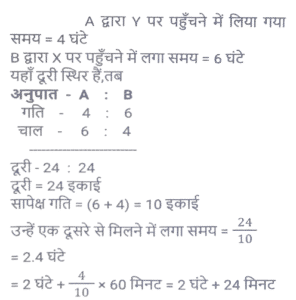 A द्वारा Y पर पहुँचने में लिया गया
समय = 4 घंटे
B द्वारा X पर पहुँचने में लगा समय = 6 घंटे
यहाँ दूरी स्थिर हैं,तब
अनुपात - A : B
गति - 4 : 6
चाल - 6 : 4
--------------------------
दूरी - 24 : 24
दूरी = 24 इकाई
सापेक्ष गति = (6 + 4) = 10 इकाई
उन्हें एक दूसरे से मिलने में लगा समय = 24/10
= 2.4 घंटे
= 2 घंटे + 4/10 × 60 मिनट = 2 घंटे + 24 मिनट